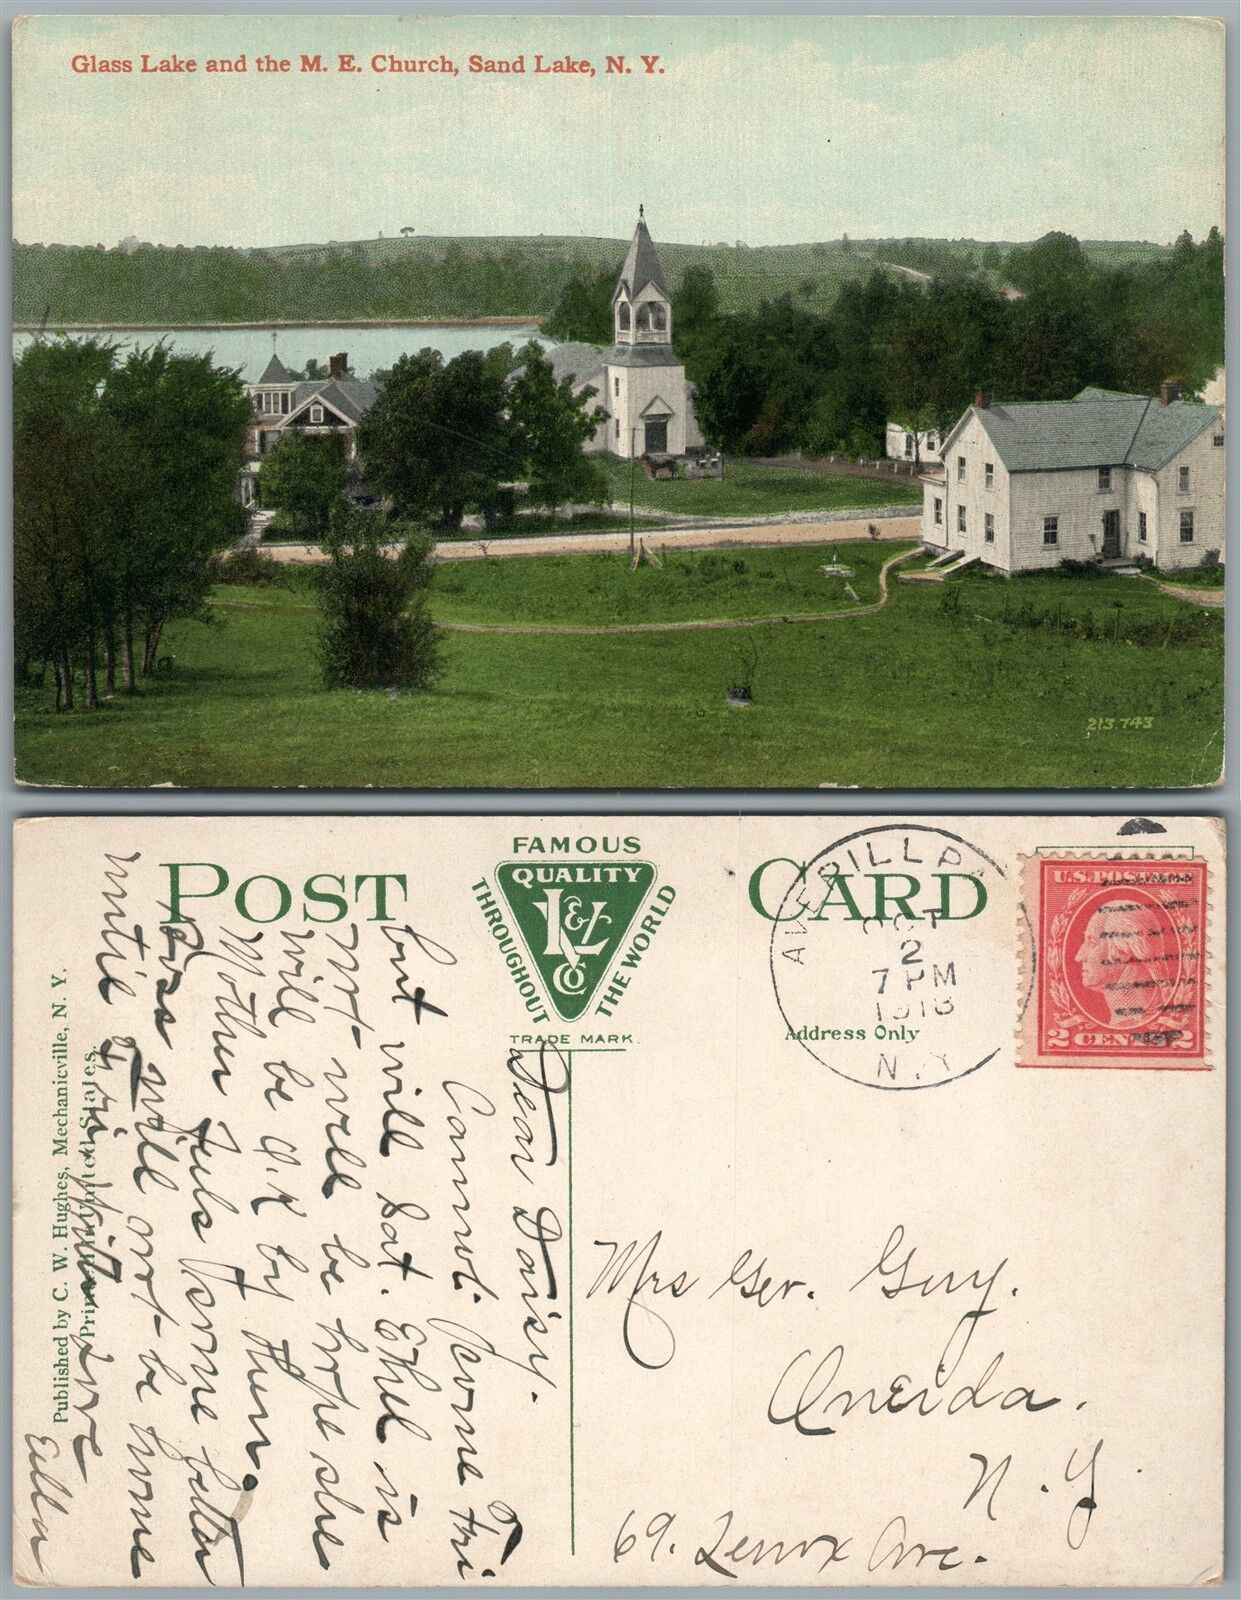 Glass Lake and the M. E. Church, Sand Lake, N. Y.
213.743
POST CARD
FAMOUS
QUALITY
THROUGHOUT
THE WORLD
K&L
Co
TRADE MARK.
AVERILLPA
OCT
2
7 PM
1918
N.Y.
U.S. POSTAGE
2 CENTS 2
Address Only
Published by C. W. Hughes, Mechanicville, N. Y.
Printed in United States.
Dear Daisy.
Cannot come Fri
but will Sat. Ethel is
not well be hope she
will be O.K by then.
Mother feels some better
Ross will not be home
until Fri. With love
Eulla
Mrs Geo. Guy.
Oneida.
N.Y.
69. Lenox Ave.